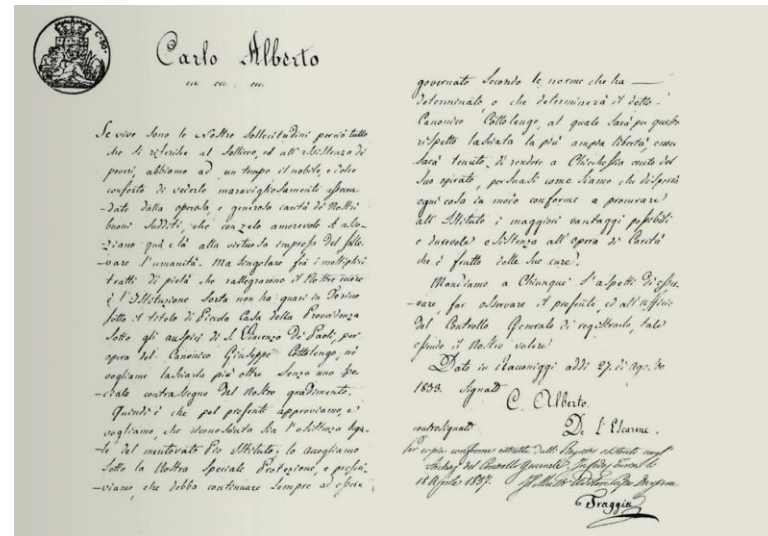 C. 50.
Carlo Alberto
Se vive sono le Nostre Sollecitudini perciò tutto
che si riferisce al Sollievo, ed all'assistenza de'
poveri, abbiamo ad un tempo il nobile, e dolce
conforto di vederle maravigliosamente secon-
-date dalla operosa, e generosa carità de' Nostri
buoni Sudditi, che con zelo amorevole si asso-
-ziano quà e là alla virtuosa impresa del solle-
-vare l'umanità. Ma singolare fra i molteplici
tratti di pietà che rallegrarono il Nostro cuore
è l'Istituzione Sorta non ha guari in Torino
sotto il titolo di Piccola Casa della Providenza
sotto gli auspici di S. Vincenzo De' Paoli, per
opera del Canonico Giuseppe Cottolengo, nè
vogliamo lasciarla più oltre Senza uno Spe-
-ciale contrassegno del Nostro gradimento.
Quindi è che pel presente approviamo, e
vogliamo, che riconosciuta sia l'esistenza lega-
-le del mentovato Pio Istituto; lo accogliamo
sotto la Nostra Speciale Protezione, e prescri-
-viamo, che debba continuare sempre ad essere
governato Secondo le norme che ha
determinato, e che determinerà il detto
Canonico Cottolengo, al quale sarà per questo
rispetto lasciata la più ampia libertà, e non
sarà tenuto, di rendere a Chicchessia conto del
suo operato, persuasi come siamo che disporrà
ogni cosa in modo conforme a procurare
all'Istituto i maggiori vantaggi possibili
e durevole esistenza all'opera di Carità
che è frutto delle sue cure.
Mandiamo a Chiunque s'aspetti di osser-
-vare, far osservare il presente, ed all'uffizio
del Controllo Generale di registrarlo, tale
essendo il Nostro volere
Dato in Racconiggi addì 27. di Agosto
1833. Signato
C. Alberto.
controsignato De l'Escarene.
Per copia conforme estratta dalli Registri esistenti negli
Archivj del Controllo Generale. In fede Torino li
18 Aprile 1837.
Fraggia